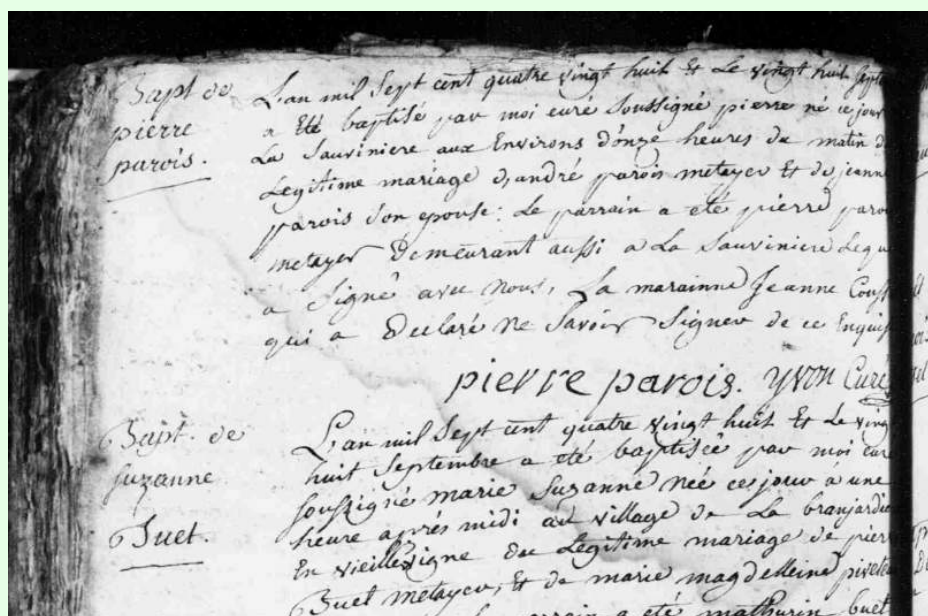 Bapt de
pierre
parois.
L'an mil Sept cent quatre vingt huit Et Le vingt huit Septe
a Eté baptisé par moi curé Soussigné pierre né ce jour
La Sauviniere aux Environs d'onze heures du matin du
Legitime mariage d'andré parois metayer Et de jeanne
parois Son epouse: Le parrain a eté pierre paroi
metayer Demeurant aussi a La Sauviniere Leque
a Signé avec Nous, La marainne Jeanne
qui a Declaré Ne Savoir Signer de ce Enquis
pierre parois. yvon Curé
Bapt. de
Suzanne
Buet.
L'an mil Sept cent quatre vingt huit Et Le ving
huit Septembre a eté baptisée par moi cur
Soussigné marie Suzanne Née ces jour à une
heure aprés midi au village de La branjardie
En vieillevigne du Legitime mariage de pierr
Buet metayer, Et de marie magdelleine
parrain a eté mathurin buet